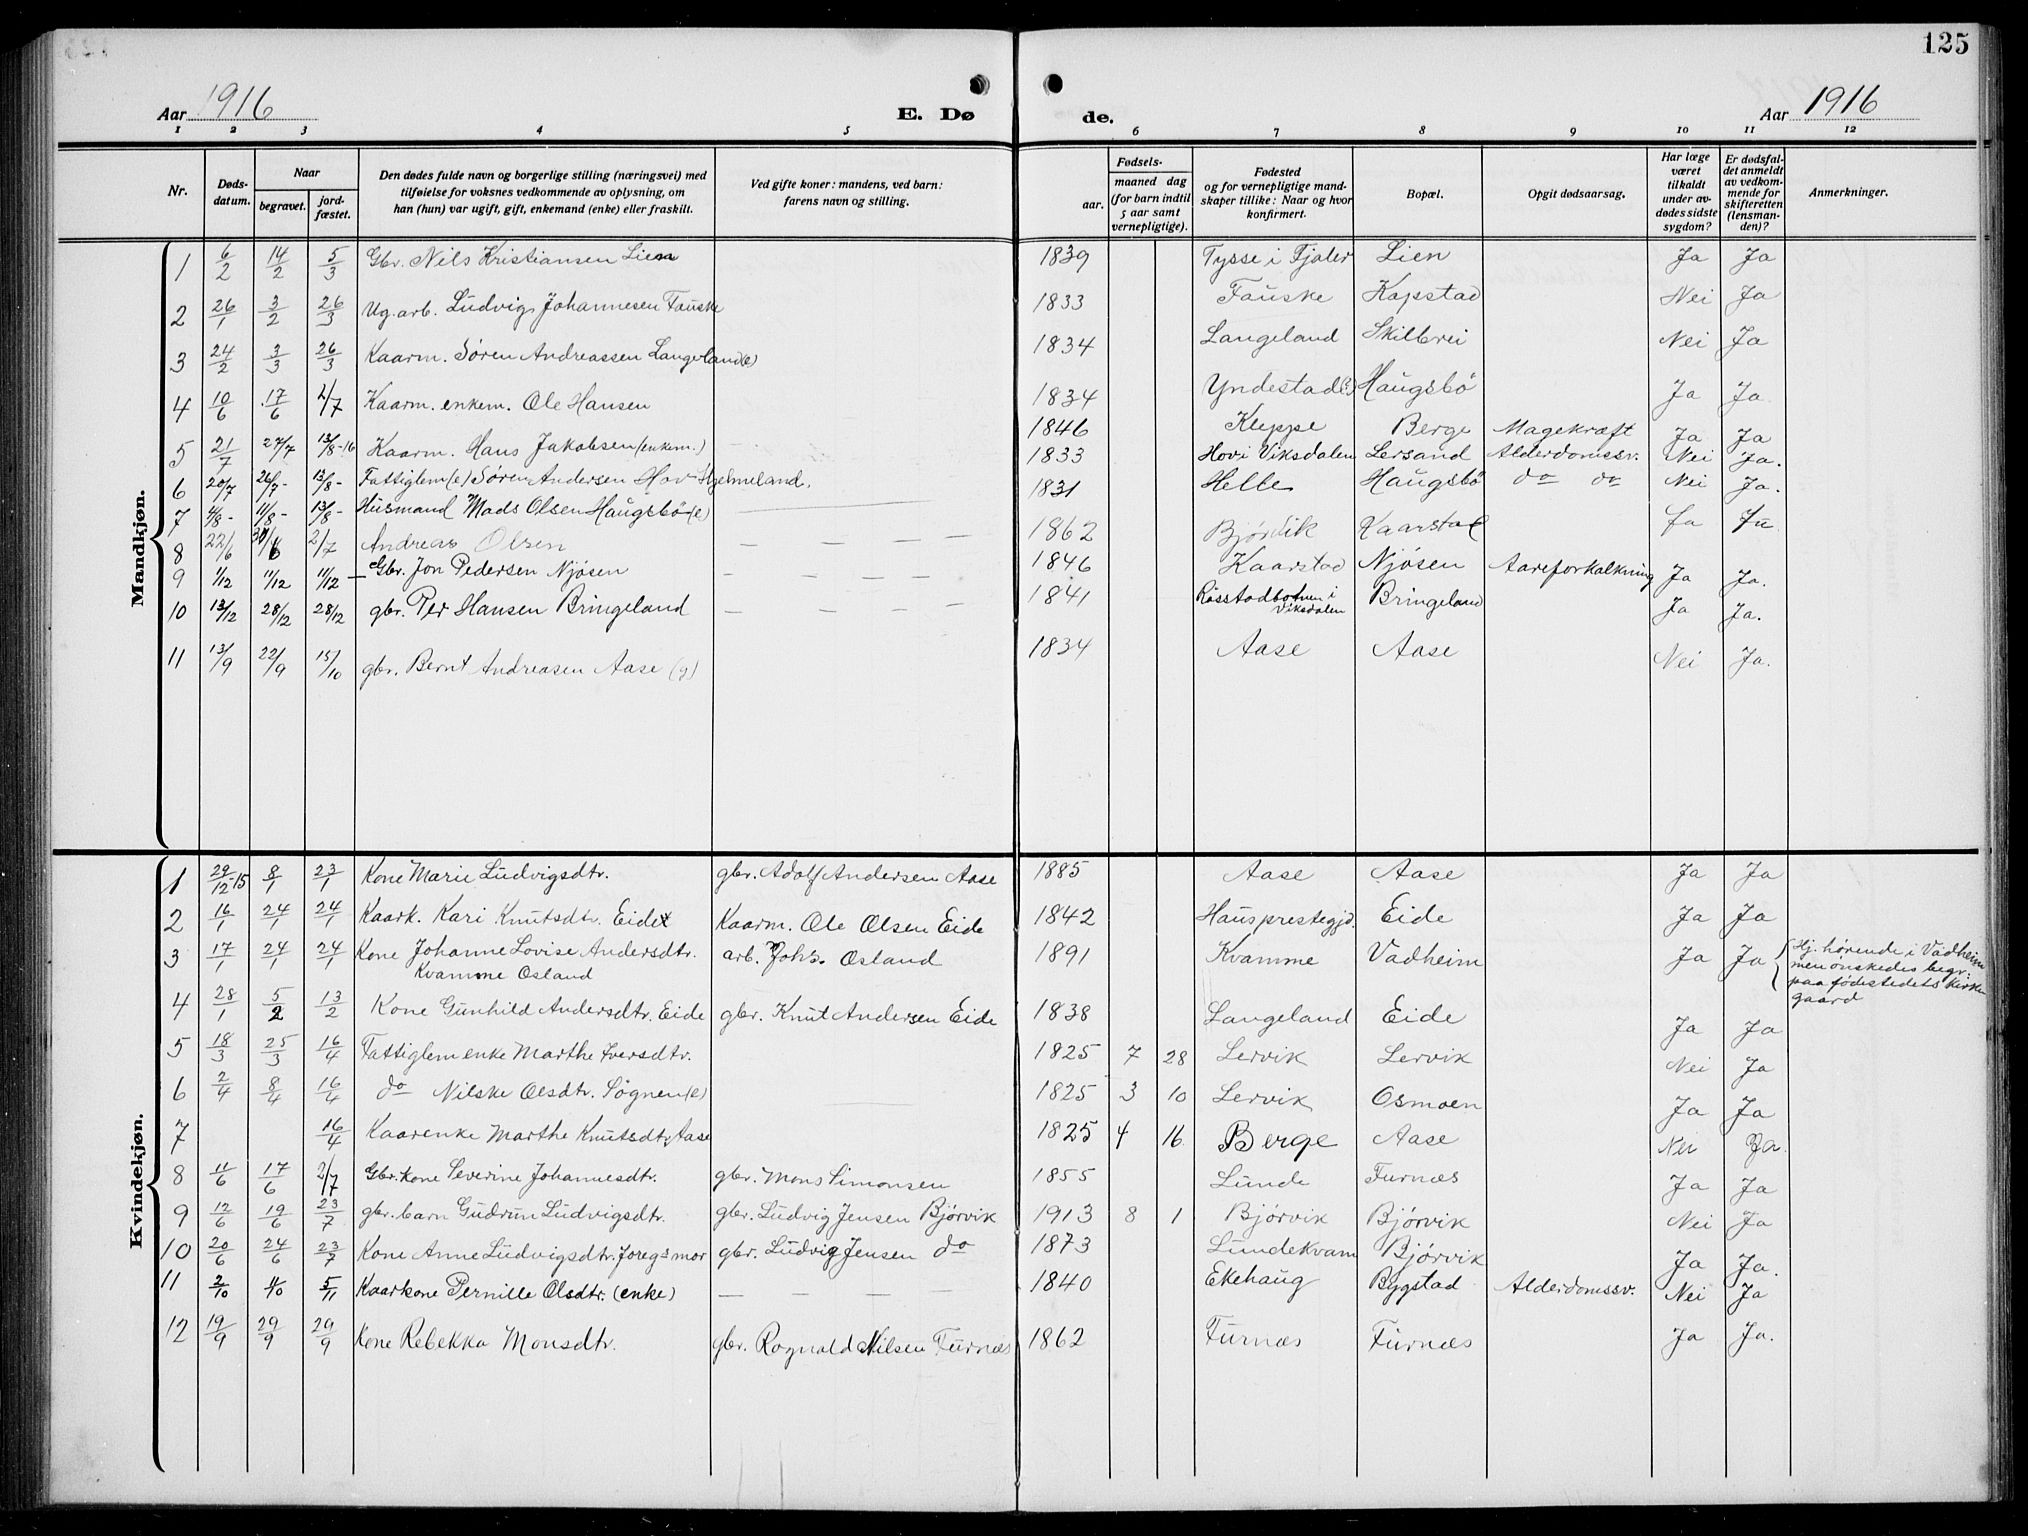 125
Aar 1916 E. Dø de. Aar 1916
1 2 3 4 5 6 7 8 9 10 11 12
Nr. Døds-datum. Naar begravet. jord-fæstet. Den dødes fulde navn og borgerlige stilling (næringsvei) med tilføielse for voksnes vedkommende av oplysning, om han (hun) var ugift, gift, enkemand (enke) eller fraskilt. Ved gifte koner: mandens, ved barn: farens navn og stilling. Fødsels- aar. maaned dag (for barn indtil 5 aar samt vernepligtige). Fødested og for vernepligtige mand-skaper tillike: Naar og hvor konfirmert. Bopæl. Opgit dødsaarsag. Har læge været tilkaldt under av-dødes sidste sygdom? Er dødsfal-det anmeldt av vedkom-mende for skifteretten (lensman-den)? Anmerkninger.
Mandkjøn.
1 6/2 14/2 5/3 Gbr. Nils Kristiansen Lien 1839 Tysse i Fjaler Lien Ja Ja
2 26/1 3/2 26/3 Ug. arb. Ludvig Johannesen Fauske 1833 Fauske Kopstad Nei Ja
3 24/2 3/3 26/3 Kaarm. Søren Andreassen Langeland(e) 1834 Langeland Skilbrei Nei Ja
4 10/6 17/6 2/7 Kaarm. enkem. Ole Hansen 1834 Yndestad Haugsbø Ja Ja
5 21/7 27/7 13/8-16 Kaarm. Hans Jakobsen (enkem.) 1846 Kleppe Berge Magekræft Ja Ja
6 20/7 26/7- 13/8- Fattiglem (e) Søren Andersen Hov Hjelmeland. 1833 Hov i Viksdalen Lersand Alderdomssv. Nei Ja.
7 4/8- 11/8- 13/8- Husmand Mads Olsen Haugsbø (e) 1831 Helle Haugsbø do do Nei Ja.
8 22/6 2/7 Andreas Olsen — — — — 1862 Bjørvik Kaarstad Ja Ja
9 1/12 11/12 11/12 Gbr. Jon Pedersen Njøsen — — — — 1846 Kaarstad Njøsen Aareforkalkning Ja Ja.
10 13/12 28/12 28/12 gbr. Per Hansen Bringeland — — — — 1841 Råsstadbotnen i Viksdalen Bringeland Ja Ja.
11 13/9 22/9 15/10 gbr. Bernt Andreasen Aase (g) 1834 Aase Aase Nei Ja.
Kvindekjøn.
1 29/12-15 8/1 23/1 Kone Marie Ludvigsdtr. gbr. Adolf Andersen Aase 1885 Aase Aase Ja Ja
2 16/1 24/1 24/1 Kaark. Kari Knutsdtr. Eide Kaarm. Ole Olsen Eide 1842 Hausprestegjd. Eide Ja Ja
3 17/1 24/1 24/1 Kone Johanne Lovise Andersdtr. Kvamme Osland arb. Johs. Osland 1891 Kvamme Vadheim Ja Ja Hj. hørende i Vadheim
men ønskedes begr.
paa fødestedets kirke
gaard
4 28/1 5/2 13/2 Kone Gunhild Andersdtr. Eide gbr. Knut Andersen Eide 1838 Langeland Eide Ja Ja
5 18/3 25/3 16/4 Fattiglem enke Marthe Iversdtr. 1825 7 28 Lervik Lervik Nei Ja
6 2/4 8/4 16/4 do Nilske Olsdtr. Søgnen (e) 1825 3 10 Lervik Osmoen Ja Ja
7 16/4 Kaarenke Marthe Knutsdtr Aase 1825 4 16 Berge Aase Nei Ja.
8 11/6 17/6 2/7 Gbr. kone Severine Johannesdtr. gbr. Mons Simonsen 1855 Lunde Furnæs Ja Ja
9 12/6 19/6 23/7 gbr. barn Gudrun Ludvigsdtr. gbr. Ludvig Jensen Bjørvik 1913 8 1 Bjørvik Bjørvik Nei Ja
10 20/6 24/6 23/7 Kone Anne Ludvigsdtr. Joregs mor gbr. Ludvig Jensen do 1873 Lundekvam Bjørvik Ja Ja.
11 2/10 11/10 5/11 Kaarkone Pernille Olsdtr. (enke) — — — — 1840 Ekehaug Bygstad Alderdomssv. Nei Ja
12 19/9 29/9 29/9 Kone Rebekka Monsdtr. gbr. Rognald Nilsen Furnæs 1862 Furnæs Furnæs Ja Ja.